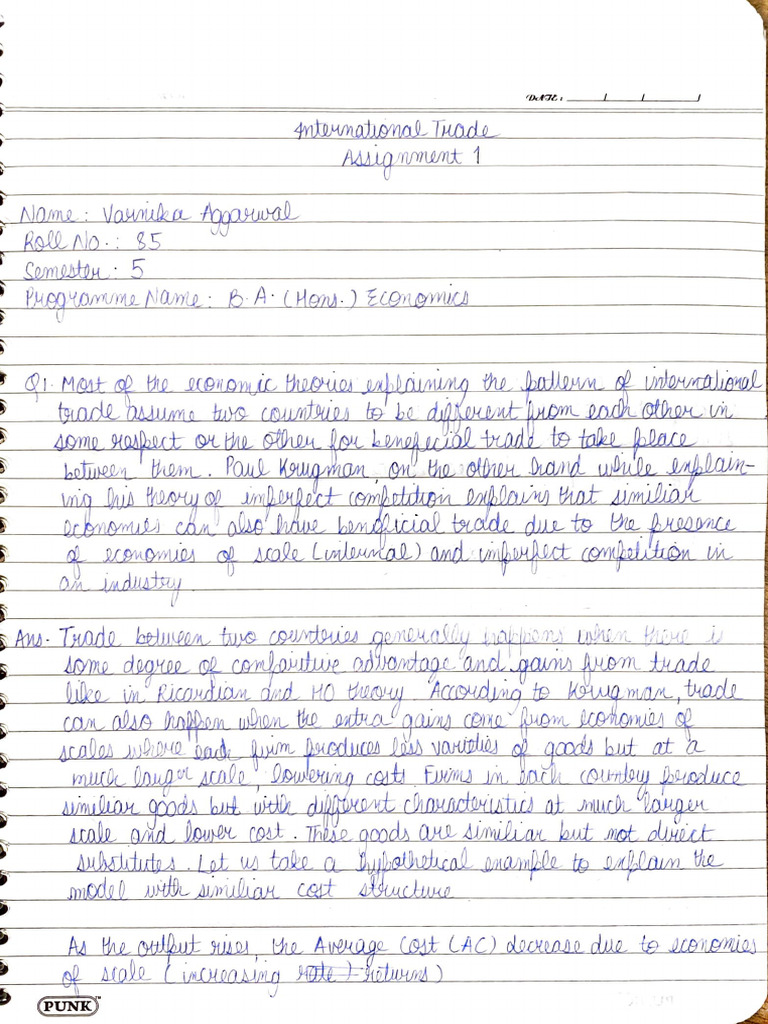 DATE:
International Trade
Assignment 1
Name: Varnika Aggarwal
Roll No.: 85
Semester: 5
Programme Name: B.A. (Hons.) Economics
Q1. Most of the economic theories explaining the pattern of international
trade assume two countries to be different from each other in
some respect or the other for benefecial trade to take place
between them. Paul Krugman, on the other hand while explain-
ing his theory of imperfect competition explains that similiar
economies can also have beneficial trade due to the presence
of economies of scale (internal) and imperfect competition in
an industry.
Ans. Trade between two countries generally happens when there is
some degree of comparitive advantage and gains from trade
like in Ricardian and HO theory. According to Krugman, trade
can also happen when the extra gains come from economies of
scales where each firm produces less varieties of goods but at a
much larger scale, lowering costs. Firms in each country produce
similiar goods but with different characteristics at much larger
scale and lower cost. These goods are similiar but not direct
substitutes. Let us take a hypothetical example to explain the
model with similiar cost structure
As the output rises, the Average Cost (AC) decrease due to economies
of scale (increasing returns)
PUNK